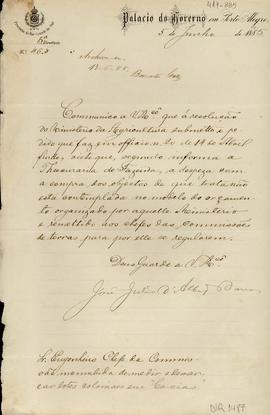 Palacio do Governo em Porto Alegre,
5 de Junho de 1885
Communico a Vmcê que á resolução
do Ministerio da Agricultura submetto o pe-
dido que faz em officio n. 20 de 14 de Abril
findo, visto que, segundo informa a
Thesouraria de Fazenda, a despeza com
a compra dos objectos de que trata não
está contemplada no modelo do orçamento
organizado por aquelle Ministerio
e remettido aos chefes das commissões
de terras para por elle se regularem.
Deus Guarde a Vmcê
José Julio d'Albuq. Barros
Sr. Engenheiro Chefe da Commis-
são incumbida de medir e demar-
car lotes coloniaes em "Caxias"